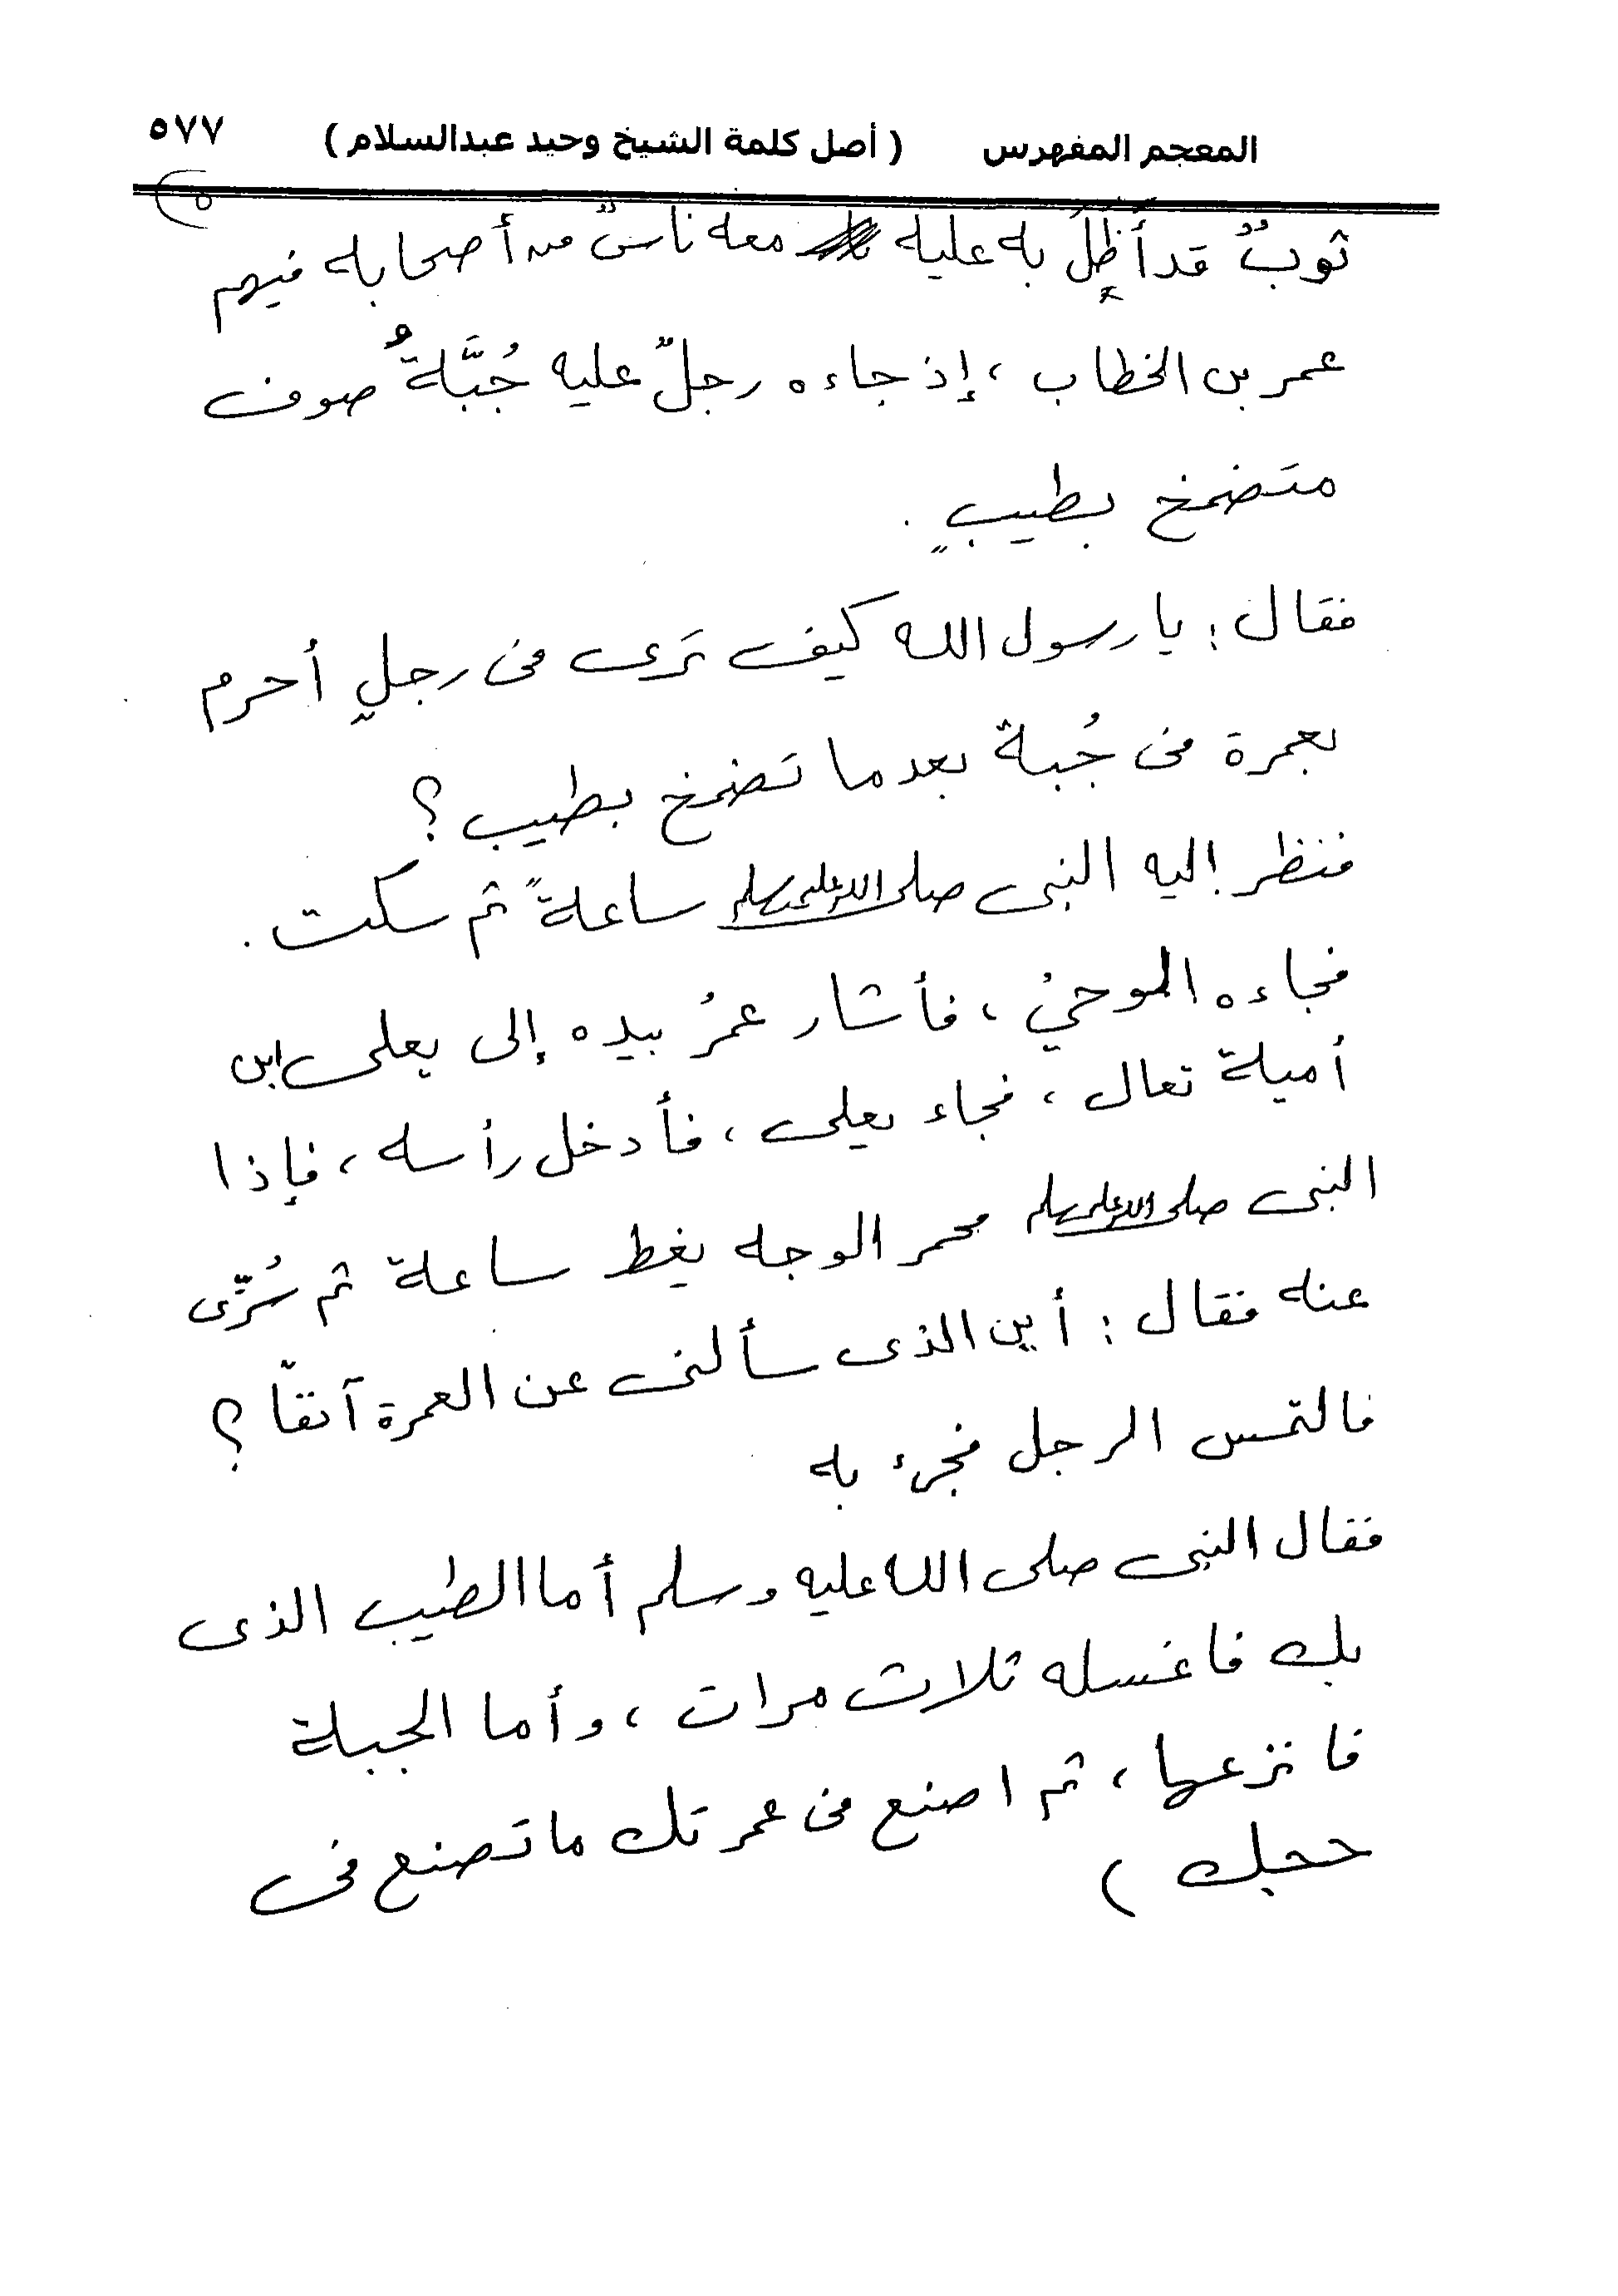 المعجم المفهرس ( أصل كلمة الشيخ وحيد عبدالسلام ) ٥٧٧
٥
ثوبٌ قد أُظِلَّ به عليه معه ناسٌ من أصحابه فيهم
عمر بن الخطاب ، إذ جاءه رجلٌ عليه جُبَّةُ صوف
متضمخ بطيبٍ .
فقال : يا رسول الله كيف تَرى في رجلٍ أحرم
بعمرة في جُبة بعدما تَضمخ بطيب ؟
فنظر إليه النبى صلى الله عليه وسلم ساعةً ثم سكت .
فجاءه الموحيُ ، فأشار عمرُ بيده إلى يعلى ابن
أمية تعال ، فجاء يعلى ، فأدخل رأسه ، فإذا
النبى صلى الله عليه وسلم محمر الوجه يغط ساعة ثم سُرِّى
عنه فقال : أين الذى سألنى عن العمرة آنفاً ؟
فالتمس الرجل فجىء به
فقال النبى صلى الله عليه وسلم أما الطيب الذى
بك فاغسله ثلاث مرات ، وأما الجبة
فانزعها ، ثم اصنع فى عمرتك ما تَصنع فى
حجك )